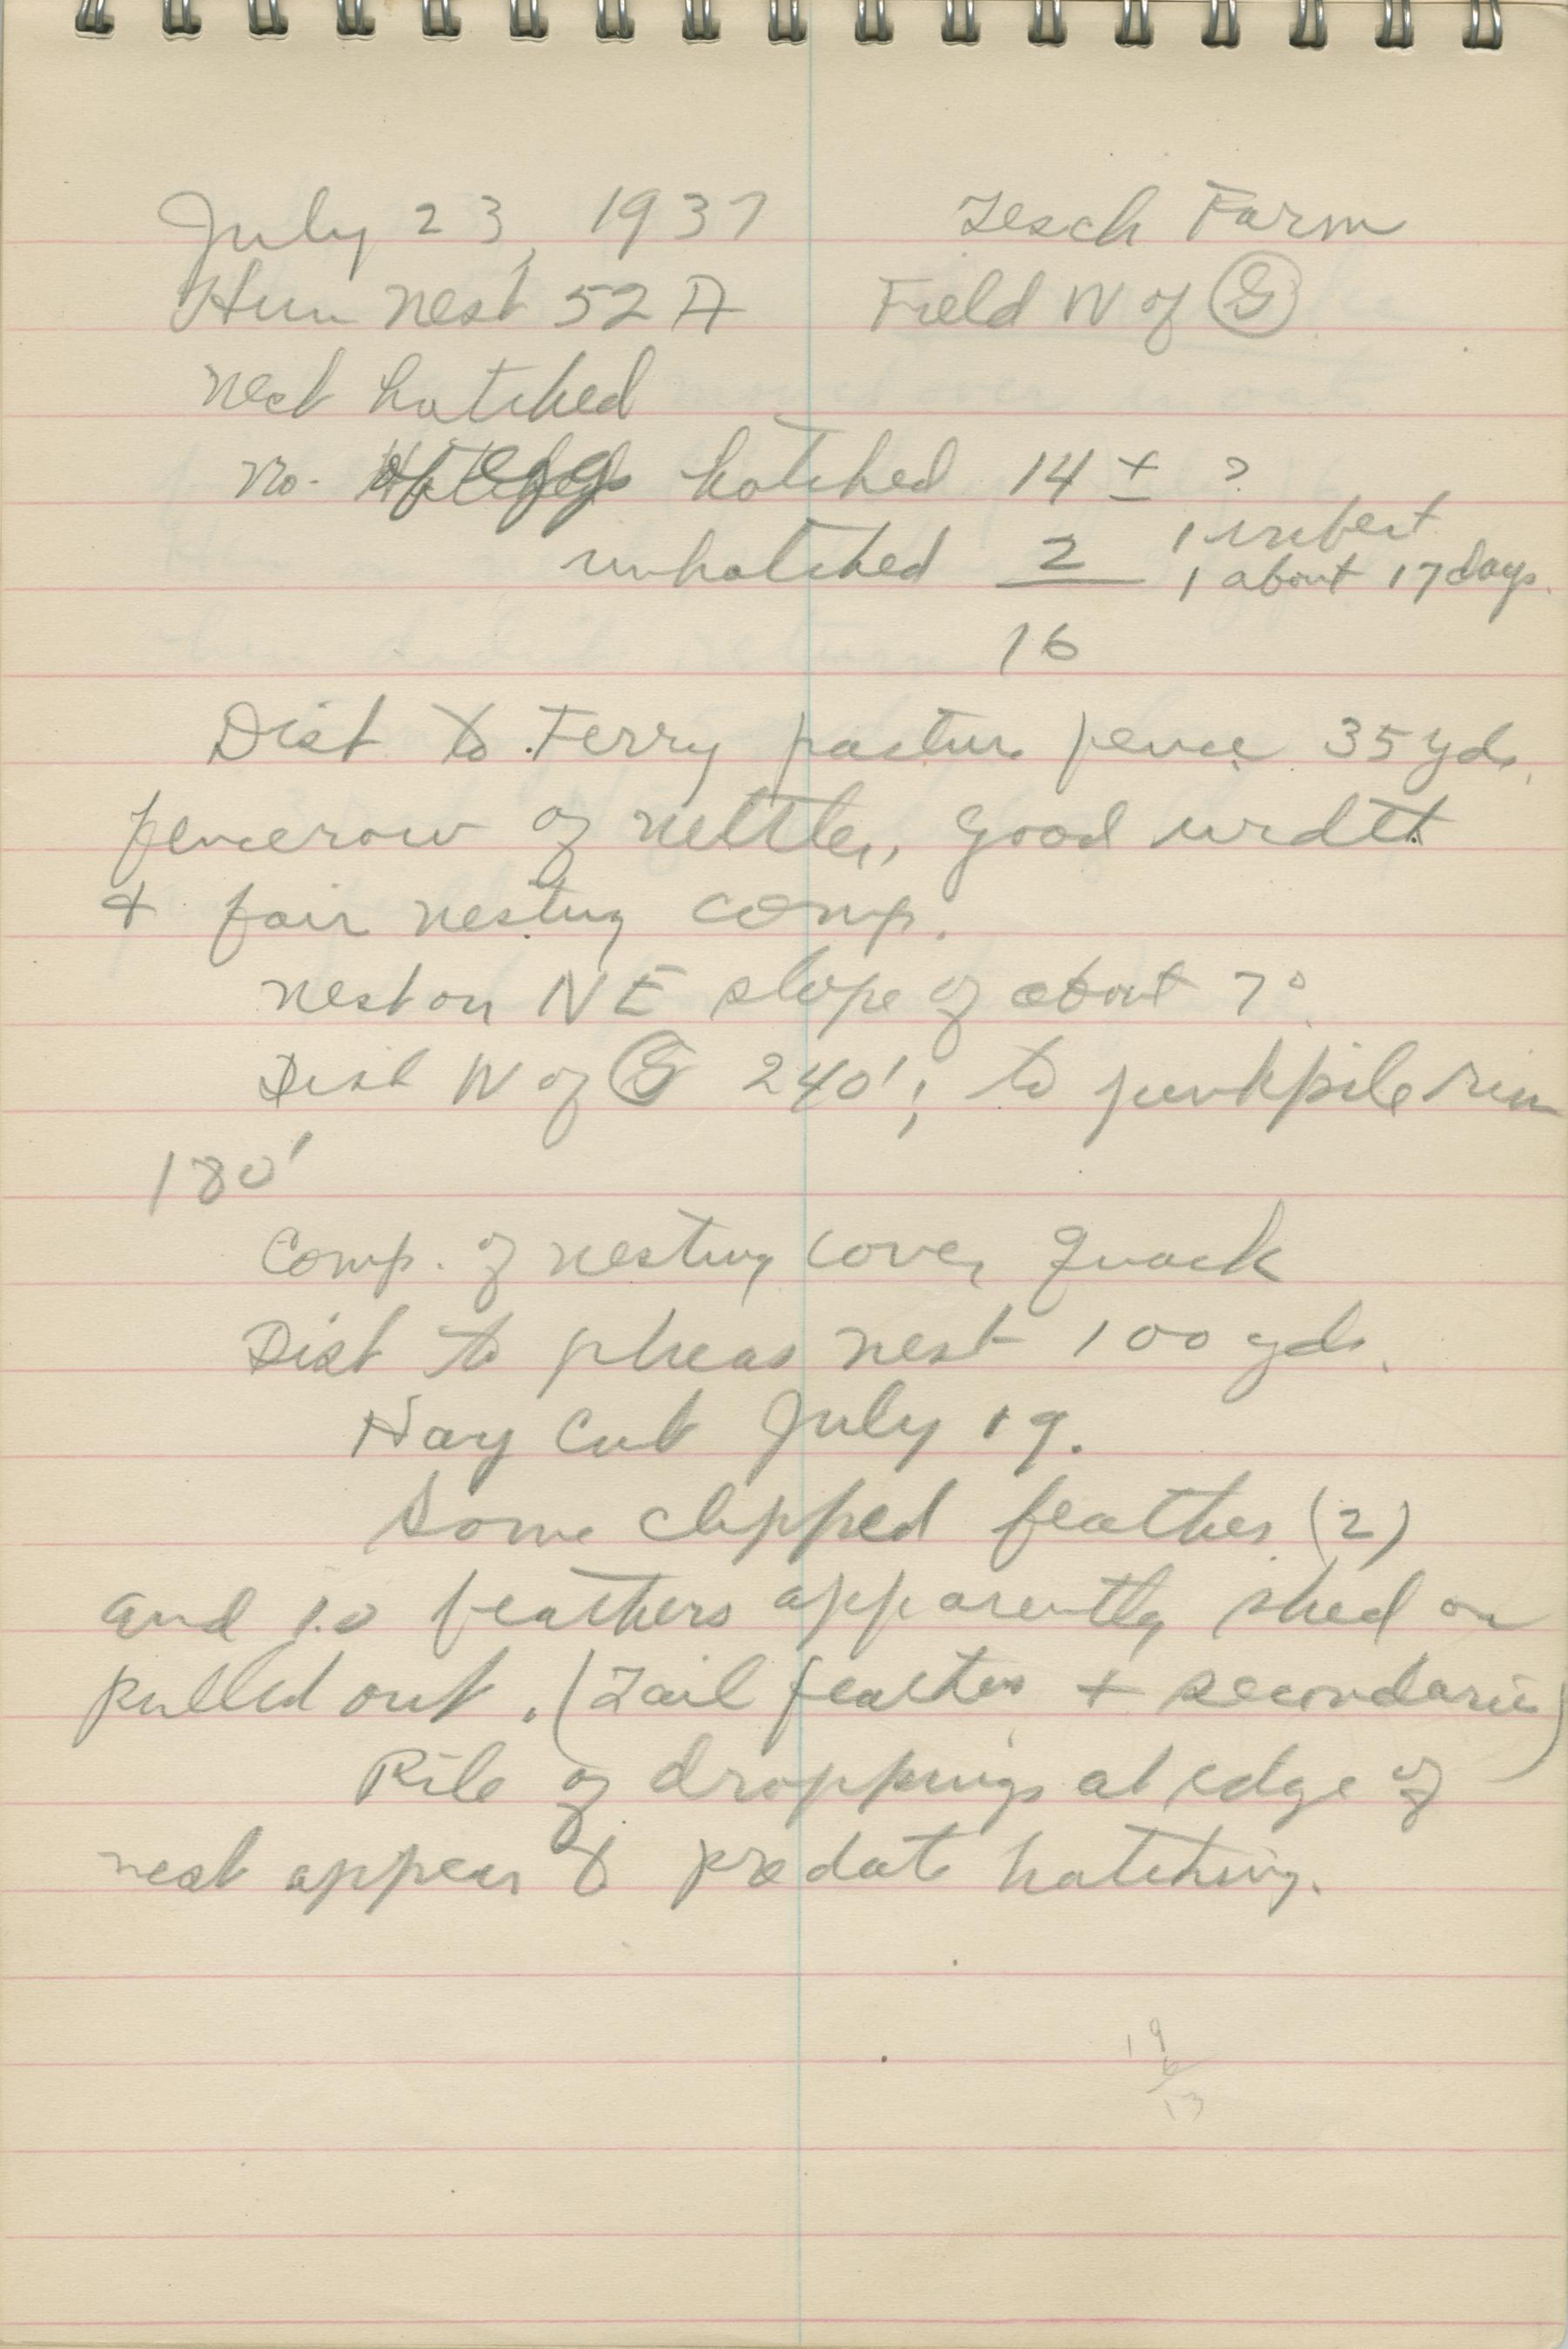 July 23, 1937 Zesch Farm
Hun nest 52 A Field W of G
nest hatched
no. of eggs hatched 14 ± ?
unhatched 2 1 infert
1 about 17 days.
16
Dist to Ferry pasture fence 35 yds.
fencerow of nettles, good width
+ fair nesting comp.
nest on NE slope of about 7°.
Dist W of G 240'; to junkpile rim
180'
Comp. of nesting cover, quack
Dist to pheas nest 100 yds.
Hay cut July 19.
Some clipped feathers (2)
and 10 feathers apparently shed or
pulled out. (Tail feathers + secondaries)
Pile of droppings at edge of
nest appear to predate hatching.
19
6
13